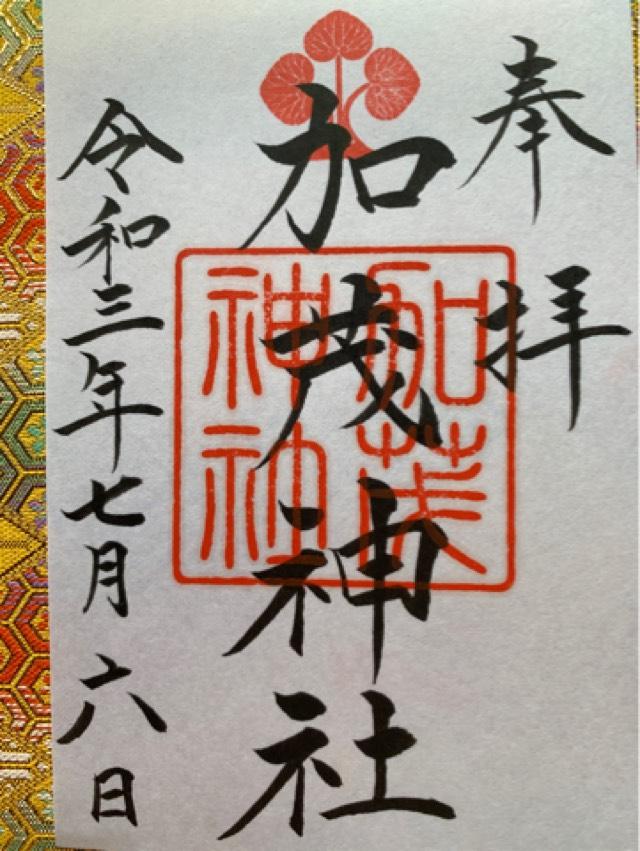 奉拝
加茂神社
加茂神社
令和三年七月六日